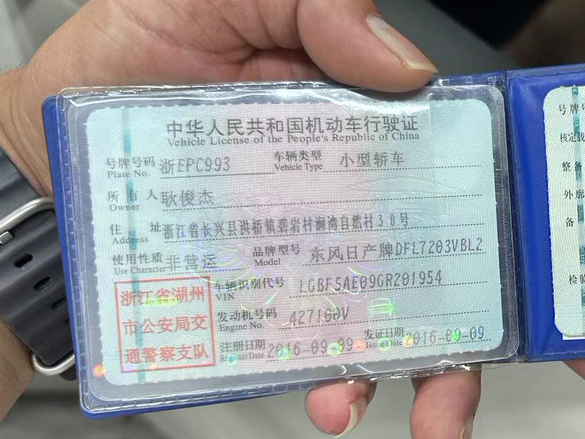 中华人民共和国机动车行驶证
Vehicle License of the People's Republic of China
号牌号码 Plate No. 浙EPC993 车辆类型 Vehicle Type 小型轿车
所有人 Owner 耿俊杰
住址 Address 浙江省长兴县洪桥镇碧岩村涧湾自然村30号
使用性质 Use Character 非营运 品牌型号 Model 东风日产牌DFL7203VBL2
浙江省湖州
市公安局交
通警察支队
车辆识别代号 VIN LGBF5AE09GR201954
发动机号码 Engine No. 427100V
注册日期 Register Date 2016-09-09 发证日期 Issue Date 2016-09-09
号牌
核定载
整备
外廓
备
检验